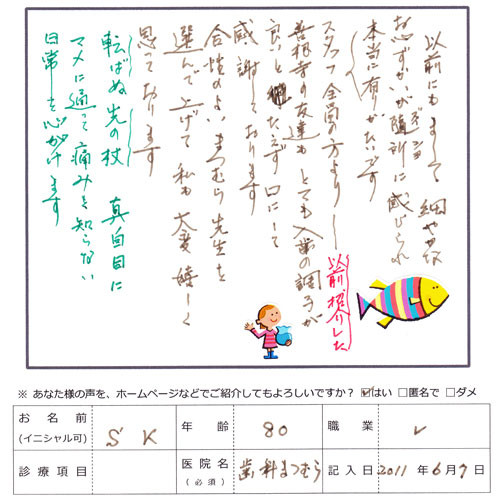 以前にもまして 細やかな
心ずかいが随所に感じられ
ズイショ
本当に有りがたいです
スタッフ全員の方より
以前紹介した
の友達も とても入歯の調子が
良いと たえず口にして
感謝しております
合性のよい まつむら先生を
選んで上げて 私も 大変 嬉しく
思っております
転ばぬ先の杖 真面目に
マメに通って 痛みを知らない
日常を心がけます
※ あなた様の声を、ホームページなどでご紹介してもよろしいですか? ☑はい □匿名で □ダメ
お名前 (イニシャル可) S K 年齢 80 職業
診療項目 医院名 (必須) 歯科まつむら 記入日 2011年6月7日